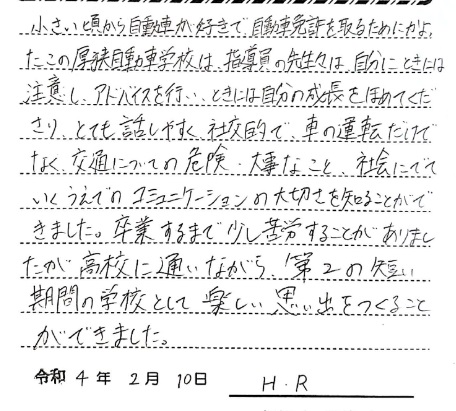 小さい頃から自動車が好きで自動車免許を取るためにかよっ
たこの厚狭自動車学校は、指導員の先生々は自分にときには
注意し、アドバイスを行い、ときには自分の成長をほめてくだ
さり、とても話しやすく社交的で、車の運転だけで
なく、交通についての危険・大事なこと、社会にでて
いくうえでのコミュニケーションの大切さを知ることがで
きました。卒業するまで少し苦労することがありまし
たが高校に通いながら、「第2の短い
期間の学校として楽しい思い出をつくること
ができました。
令和 4 年 2 月 10 日 H.R